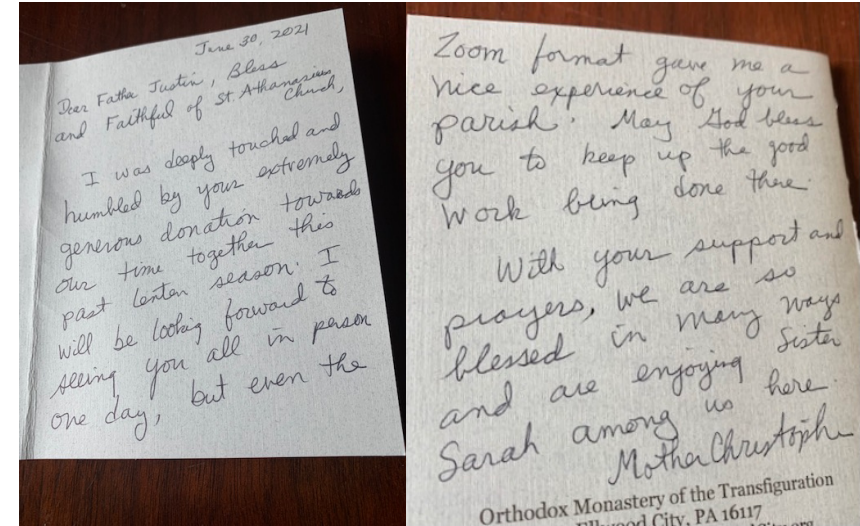 June 30, 2021
Dear Father Justin, Bless
and Faithful of St. Athanasius
Church,
I was deeply touched and
humbled by your extremely
generous donation towards
our time together this
past lenten season. I
will be looking forward to
seeing you all in person
one day, but even the
Zoom format gave me a
nice experience of your
parish. May God bless
you to keep up the good
work being done there.
With your support and
prayers, we are so
blessed in many ways
and are enjoying Sister
Sarah among us here.
Mother Christophe
Orthodox Monastery of the Transfiguration
Ellwood City, PA 16117